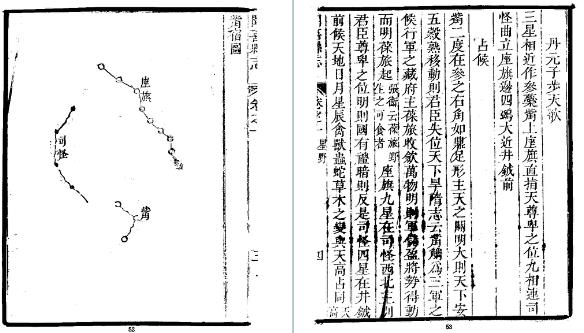 丹元子步天歌
三星相近作參蘂觜上座旗直指天尊卑之位九相連司
怪曲立座旗邊四鴉大近井鉞前
占候
觜二度在參之右角如鼎足形主天之關明大則天下安
五穀熟移動則君臣失位天下旱隋志云觜觿為三軍之
候行軍之藏府主葆旅收斂萬物明則軍儲盈將勢得動
而明葆旅起張衡云葆旅野生之可食者座旗九星在司怪西北主別
君臣尊卑之位明則國有禮暗則反是司怪四星在井鉞
前候天地日月星辰禽獸蟲蛇草木之變與天高占同天
星野
四
53
座旗
司怪
觜
觜宿圖
52